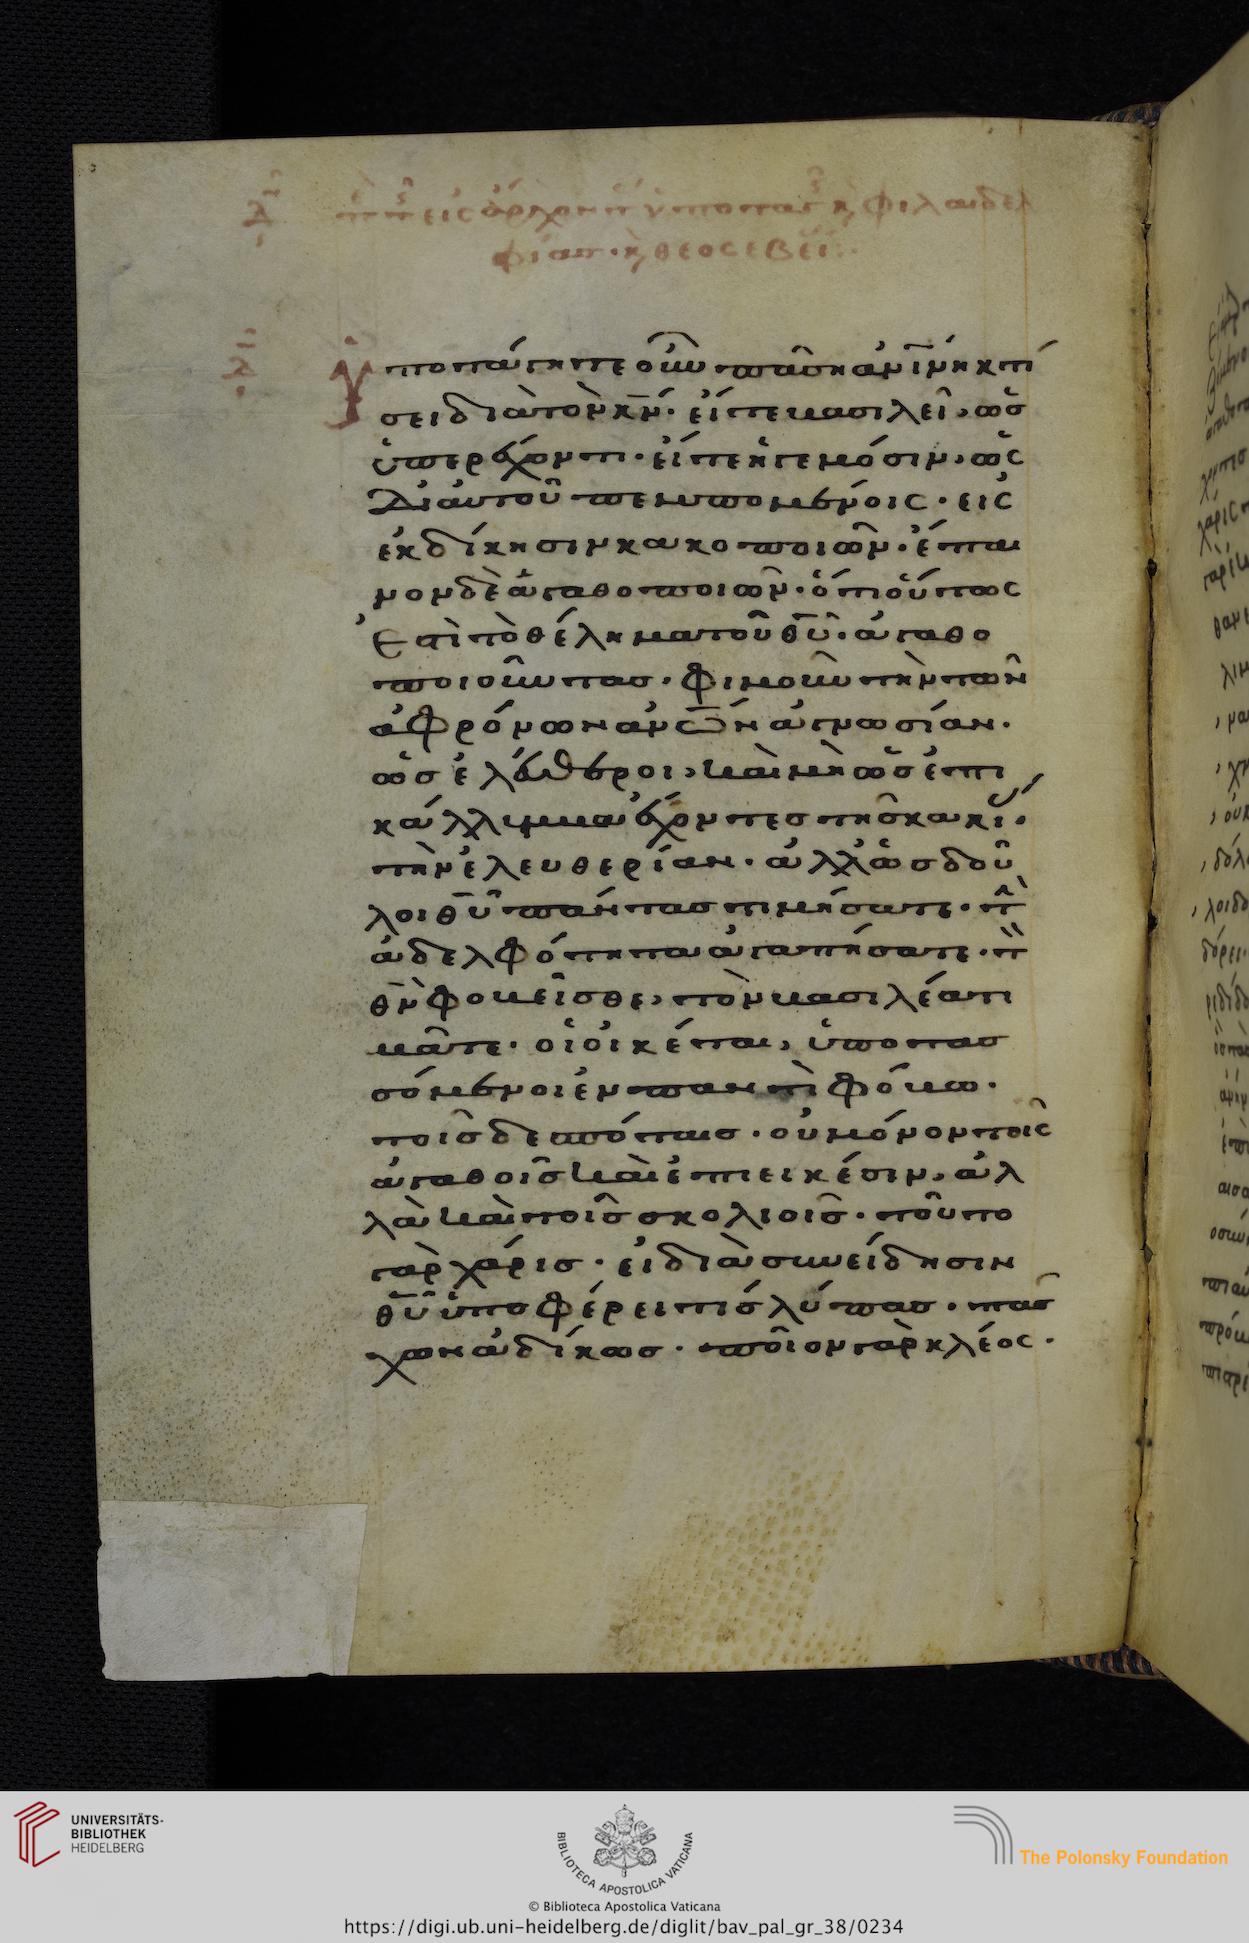 ὑποτάγητε οὖν πάσῃ ἀνίνῃ κτί
σει διὰ τὸν κν· εἴτε βασιλεῖ, ὡσ
ὑπερέχοντι· εἴτε ἡγεμόσιν, ὡς
δι αὐτοῦ πεμπομένοις· εις
ἐκδίκησιν κακοποιῶν· ἔπαι
νον δὲ ἀγαθοποιῶν· ὅτι οὕτως
ἐστὶ τὸ θέλημα τοῦ θυ· ἀγαθο
ποιοῦντας· φιμοῦν τὴν τῶν
ἀφρόνων ἀνων ἀγνωσίαν·
ὡσ ἐλέυθεροι, καὶ μὴ ὡσ ἐπι
κάλλυμμα ἔχοντες τῆσ κακί
τὴν ἐλευθερίαν· ἀλλ ὡσ δοῦ
λοι θυ πάντασ τιμήσατε· τὴ
ἀδελφότητα ἀγαπήσατε· τὸ
θν φοβεῖσθε, τὸν βασιλέα τι
μᾶτε· οἱ οἰκέται, ὑποτασ
σόμενοι ἐν παντὶ φόβω·
τοῖσ δεσπόταισ· οὐ μόνον τοῖς
ἀγαθοῖσ καὶ ἐπιεικέσιν, ἀλ
λὰ καὶ τοῖσ σκολιοῖσ· τοῦτο
γὰρ χάρισ· εἰ διὰ συνείδησιν
θυ ὑποφέρει τίσ λύπασ· πάσ
χων ἀδίκωσ· ποῖον γὰρ κλέος·
UNIVERSITÄTS-
BIBLIOTHEK
HEIDELBERG
BIBLIOTECA APOSTOLICA VATICANA
The Polonsky Foundation
© Biblioteca Apostolica Vaticana
https://digi.ub.uni-heidelberg.de/diglit/bav_pal_gr_38/0234